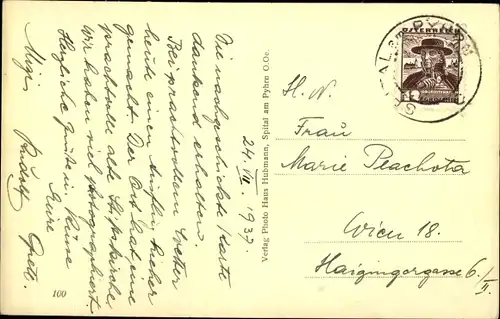 24. VII. 1937.
Die nachgeschickte Karte
dankend erhalten.
Bei prachtvollem Wetter
heute einen Ausflug hieher
gemacht. Der Ort hat eine
prachtvolle alte Stiftskirche
wir haben viel photographiert.
Herzliche Grüße u. Küsse
Eure
Mizzi Rudolf Gretl.
100
Verlag Photo Haus Hubmann, Spital am Pyhrn O.Oe.
SPITAL am PYHRN
ÖSTERREICH
H. N.
Frau
Marie Plachota
Wien 18.
Haizingergasse 6/II.